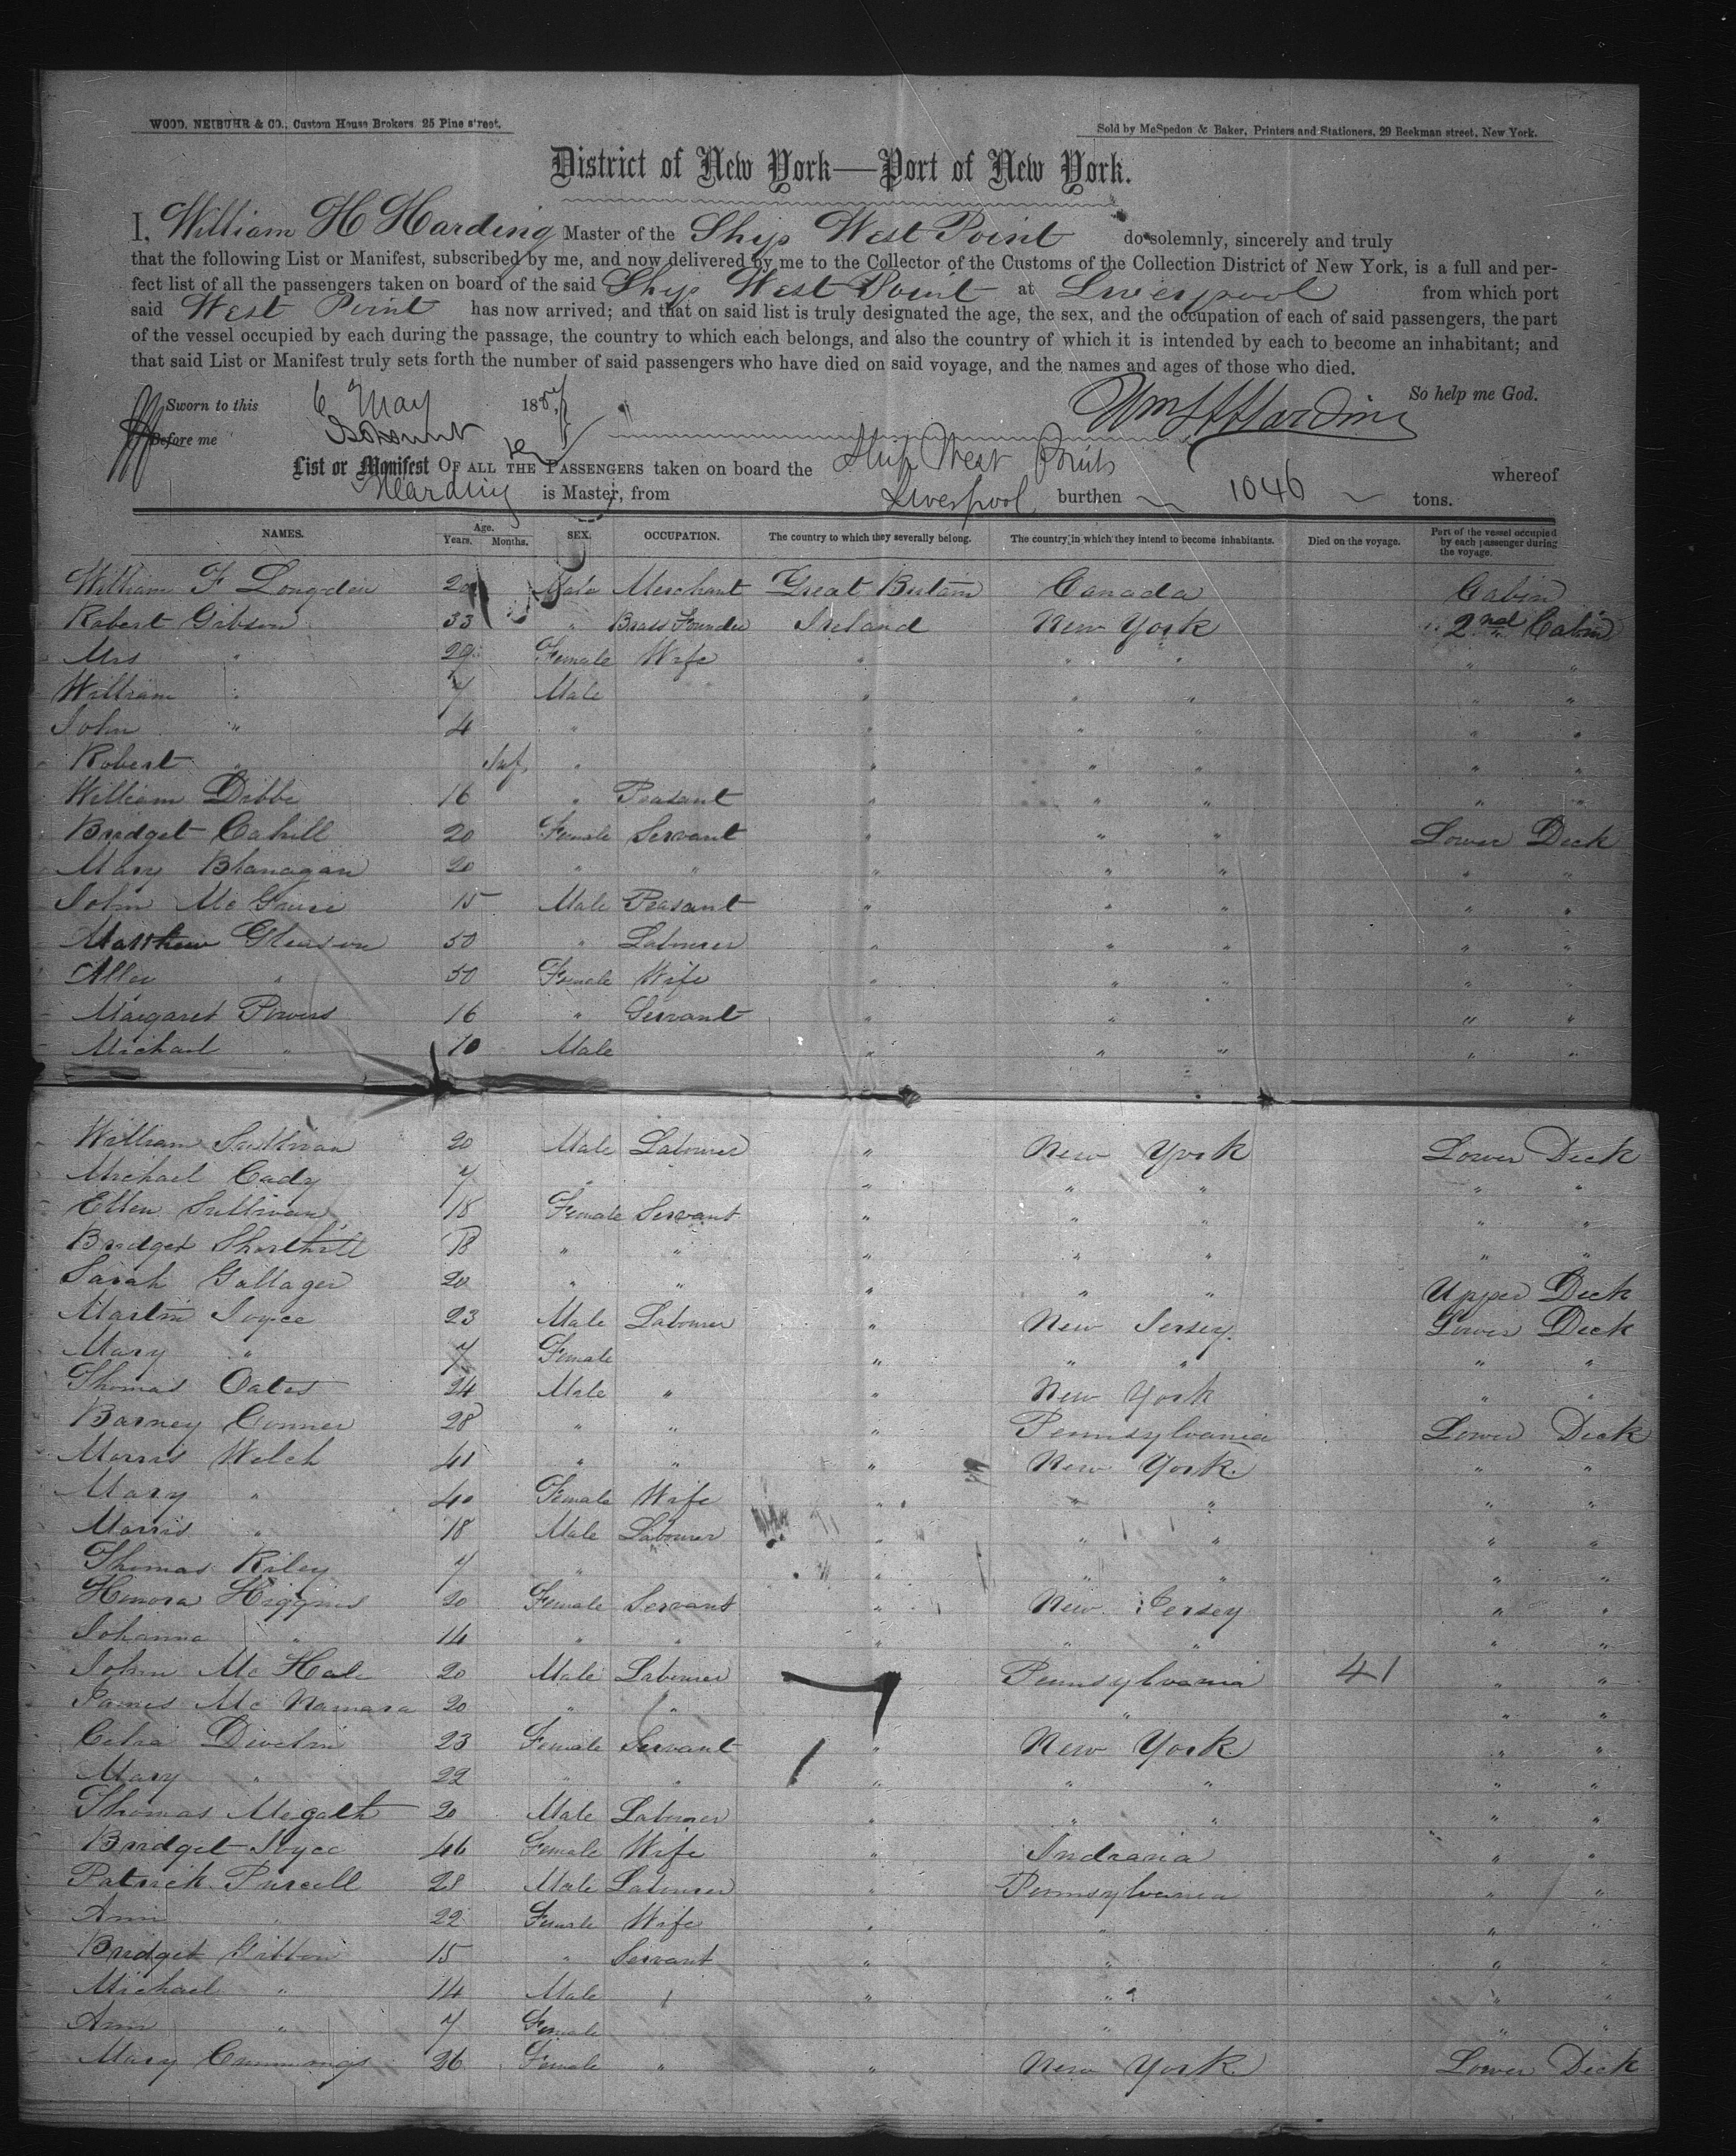 WOOD, NEIBUHR & CO., Custom House Brokers, 25 Pine street.
Sold by McSpedon & Baker, Printers and Stationers, 29 Beekman street, New York.
District of New York—Port of New York.
I, William H Harding Master of the Ship West Point do solemnly, sincerely and truly
that the following List or Manifest, subscribed by me, and now delivered by me to the Collector of the Customs of the Collection District of New York, is a full and per-
fect list of all the passengers taken on board of the said Ship West Point at Liverpool from which port
said West Point has now arrived; and that on said list is truly designated the age, the sex, and the occupation of each of said passengers, the part
of the vessel occupied by each during the passage, the country to which each belongs, and also the country of which it is intended by each to become an inhabitant; and
that said List or Manifest truly sets forth the number of said passengers who have died on said voyage, and the names and ages of those who died.
So help me God.
Sworn to this 6 May 1857
Wm H Harding
Before me
List or Manifest OF ALL THE PASSENGERS taken on board the Ship West Point whereof
Harding is Master, from Liverpool burthen 1046 tons.
NAMES. Age. Years. Months. SEX. OCCUPATION. The country to which they severally belong. The country in which they intend to become inhabitants. Died on the voyage. Part of the vessel occupied by each passenger during the voyage.
William F Longden Male Merchant Great Britain Canada Cabin
Robert Gibson 33 " Brass Founder Ireland New York 2nd Cabin
Mrs " 29 Female Wife " " " " "
William " 7 Male " " " " "
John " 4 " " " " " "
Robert " Inf. " " " " " "
William Dibbe 16 " Peasant " " " " "
Bridget Cahill 20 Female Servant " " " Lower Deck
Mary Blanagan 20 " " " " " " "
John Mc 15 Male Peasant " " " " "
Matthew Gleason 50 " Labourer " " " " "
Alley " 50 Female Wife " " " " "
Margaret Powers 16 " Servant " " " "
Michael " 10 Male " " " " "
William Sullivan 20 Male Labourer " New York Lower Deck
Michael Cady 7 " " " " " "
Ellen Sullivan 18 Female Servant " " " " "
Bridget Shorthill 18 " " " " " " "
Sarah Gallager 20 " " " " " Upper Deck
Martin Joyce 23 Male Labourer " New Jersey Lower Deck
Mary " 7 Female " " " " "
Thomas Oates 24 Male " " New York " "
Barney Conner 28 " " " Pennsylvania Lower Deck
Morris Welch 41 " " " New York " "
Mary " 40 Female Wife " " " " "
Morris " 18 Male Labourer " " " " "
Thomas Riley 7 " " " " " "
Honora Higgins 20 Female Servant " New Jersey " "
Johanna " 14 " " " " " " "
John Mc Hale 20 Male Labourer Pennsylvania 41 " "
James Mc Namara 20 " " " " "
Devlin 23 Female Servant " New York " "
Mary " 22 " " " " " " "
Thomas Megath 20 Male Labourer " " " " "
Bridget Joyce 46 Female Wife " Indiana " "
Patrick Purcell 28 Male Labourer " Pennsylvania " "
Ann " 22 Female Wife " " " "
Bridget Gibbon 15 " Servant " " " "
Michael " 14 Male " " " "
Ann " 7 Female " " "
Mary Cummings 26 Female " " New York Lower Deck